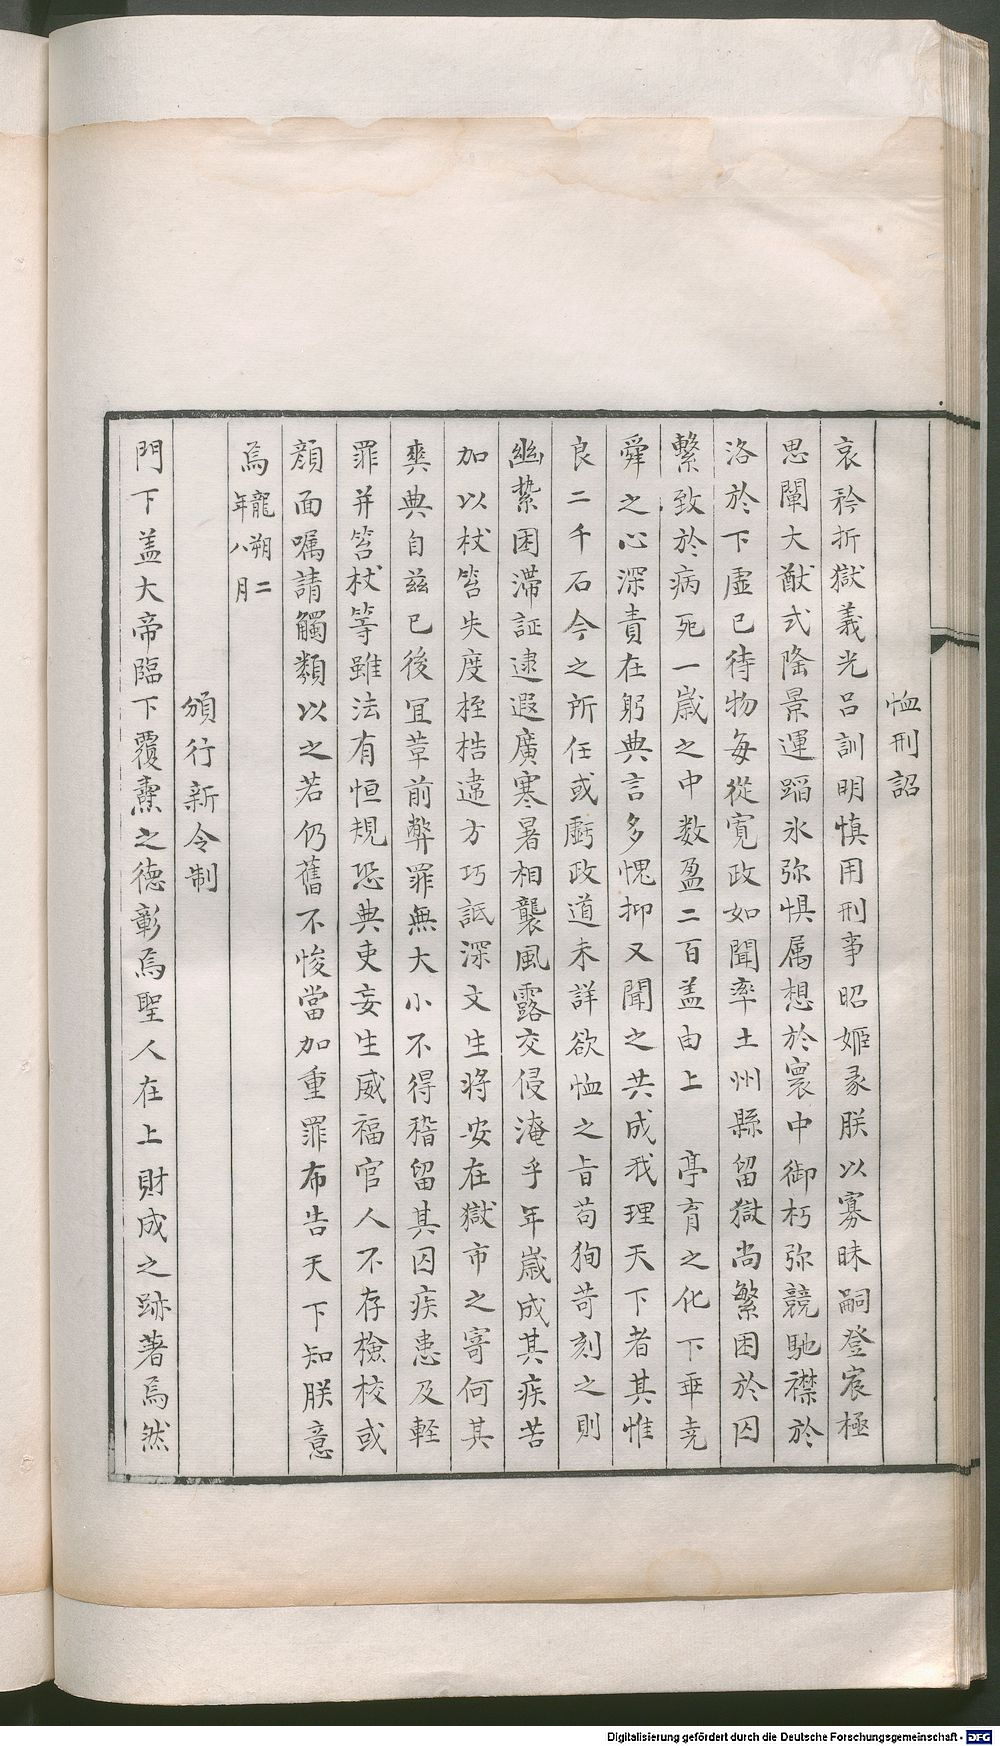 恤刑詔
哀矜折獄義光呂訓明慎用刑事昭姬彖朕以寡昧嗣登宸極
思闡大猷式隆景運蹈氷弥惧属想於寰中御朽弥兢馳襟於
洛於下虛已待物每從寬政如聞率土州縣留獄尚繁困於囚
繫致於病死一嵗之中数盈二百盖由上　亭育之化下乖尭
舜之心深責在躬典言多愧抑又聞之共成我理天下者其惟
良二千石今之所任或虧政道未詳欲恤之旨苟狥苛刻之則
幽縶困滯証逮遐廣寒暑相襲風露交侵淹乎年嵗成其疾苦
加以杖笞失度桎梏違方巧詆深文生將安在獄市之寄何其
爽典自兹已後冝革前弊罪無大小不得稽留其囚疾患及輕
罪并笞杖等雖法有恒規恐典吏妄生威福官人不存檢校或
顏面嘱請觸類以之若仍舊不悛當加重罪布告天下知朕意
焉龍朔二年八月
頒行新令制
門下盖大帝臨下覆燾之德彰焉聖人在上財成之跡著焉然
Digitalisierung gefördert durch die Deutsche Forschungsgemeinschaft - DFG